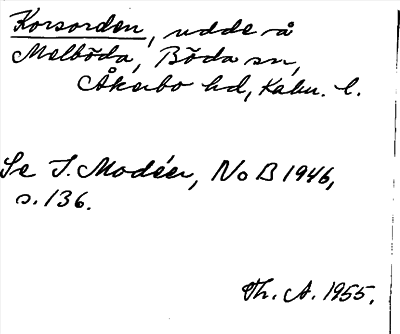 Korsorden, udde å
Melböda, Böda sn,
Åkerbo hd, Kalm. l.
Se I. Modéer, NoB 1946,
s. 136.
Th. A. 1955.